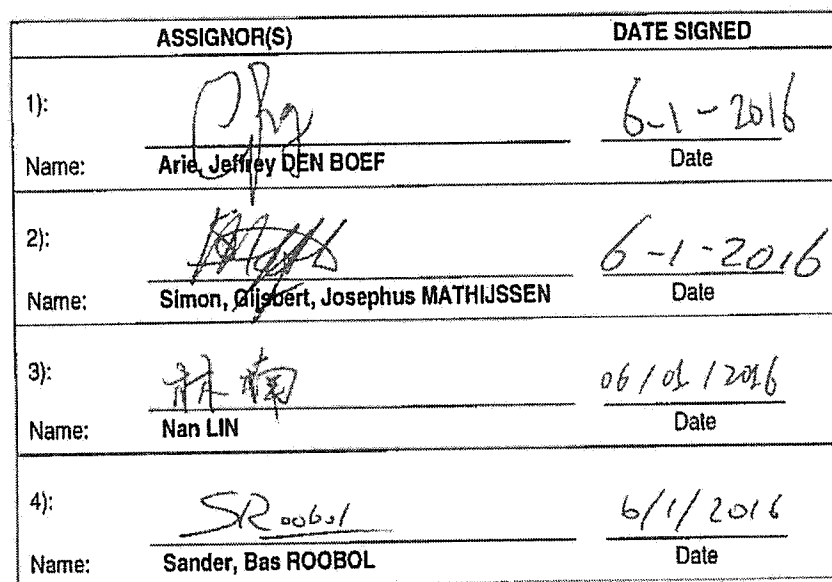 ASSIGNOR(S) DATE SIGNED
1):
6-1-2016
Name: Arie, Jeffrey DEN BOEF Date
2):
6-1-2016
Name: Simon, Gijsbert, Josephus MATHIJSSEN Date
3): 林楠 06/01/2016
Name: Nan LIN Date
4): SRoobol 6/1/2016
Name: Sander, Bas ROOBOL Date